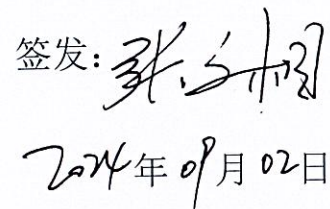 签发:张
2024年09月02日